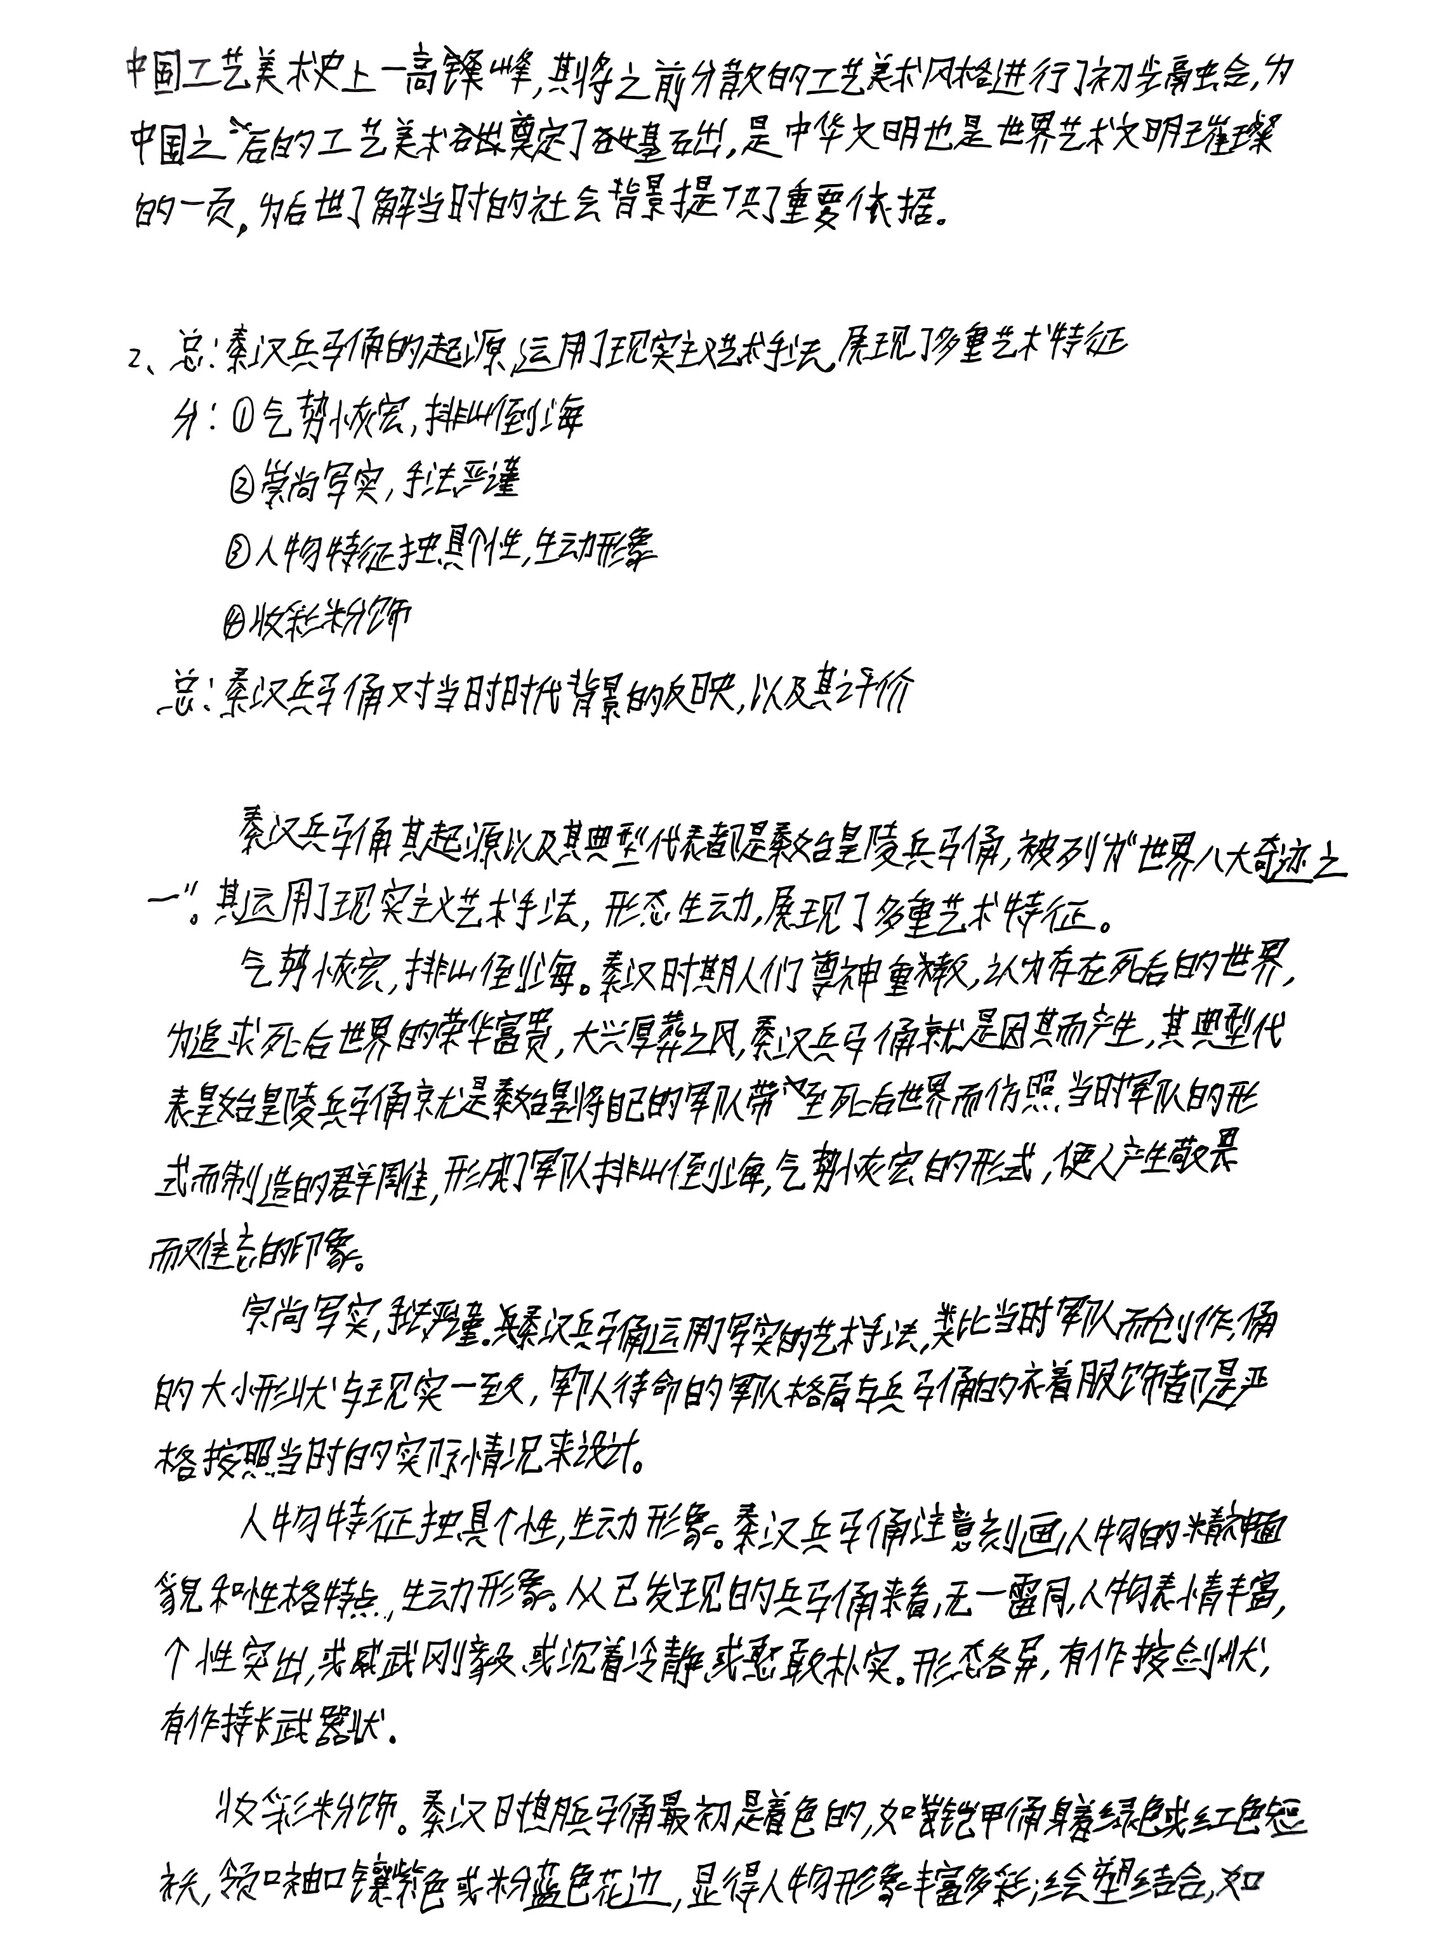 中国工艺美术史上一高峰,其将之前分散的工艺美术风格进行了初步融会,为
中国之后的工艺美术奠定了基石出,是中华文明也是世界艺术文明璀璨
的一页,为后世了解当时的社会背景提供了重要依据。
2、总:秦汉兵马俑的起源,运用了现实主义艺术手法,展现了多重艺术特征
分:①气势恢宏,排山倒海
②崇尚写实,手法严谨
③人物特征独具个性,生动形象
④收彩粉饰
总:秦汉兵马俑对当时时代背景的反映,以及其评价
秦汉兵马俑其起源以及其典型代表都是秦始皇陵兵马俑,被列为“世界八大奇迹之
一”。其运用了现实主义艺术手法,形态生动,展现了多重艺术特征。
气势恢宏,排山倒海。秦汉时期人们尊神重教,认为存在死后的世界,
为追求死后世界的荣华富贵,大兴厚葬之风,秦汉兵马俑就是因其而产生,其典型代
表皇始皇陵兵马俑就是秦始皇将自己的军队带至死后世界而仿照当时军队的形
式而制造的群雕,形成了军队排山倒海,气势恢宏的形式,使人产生敬畏
而难忘的印象。
崇尚写实,手法严谨。秦汉兵马俑运用了写实的艺术手法,类比当时军队而创作,俑
的大小形状与现实一致,军队待命的军队格局与兵马俑的衣着服饰都是严
格按照当时的实际情况来设计。
人物特征独具个性,生动形象。秦汉兵马俑注意刻画人物的精神面
貌和性格特点,生动形象。从已发现的兵马俑来看,无一雷同,人物表情丰富,
个性突出,或威武刚毅、或沉着冷静、或憨敢朴实。形态各异,有作按剑状,
有作持长武器状.
收彩粉饰。秦汉时期兵马俑最初是着色的,如铠甲俑身着绿色或红色短
袄,领口袖口镶紫色或粉蓝色花边,显得人物形象丰富多彩;绘塑结合,如